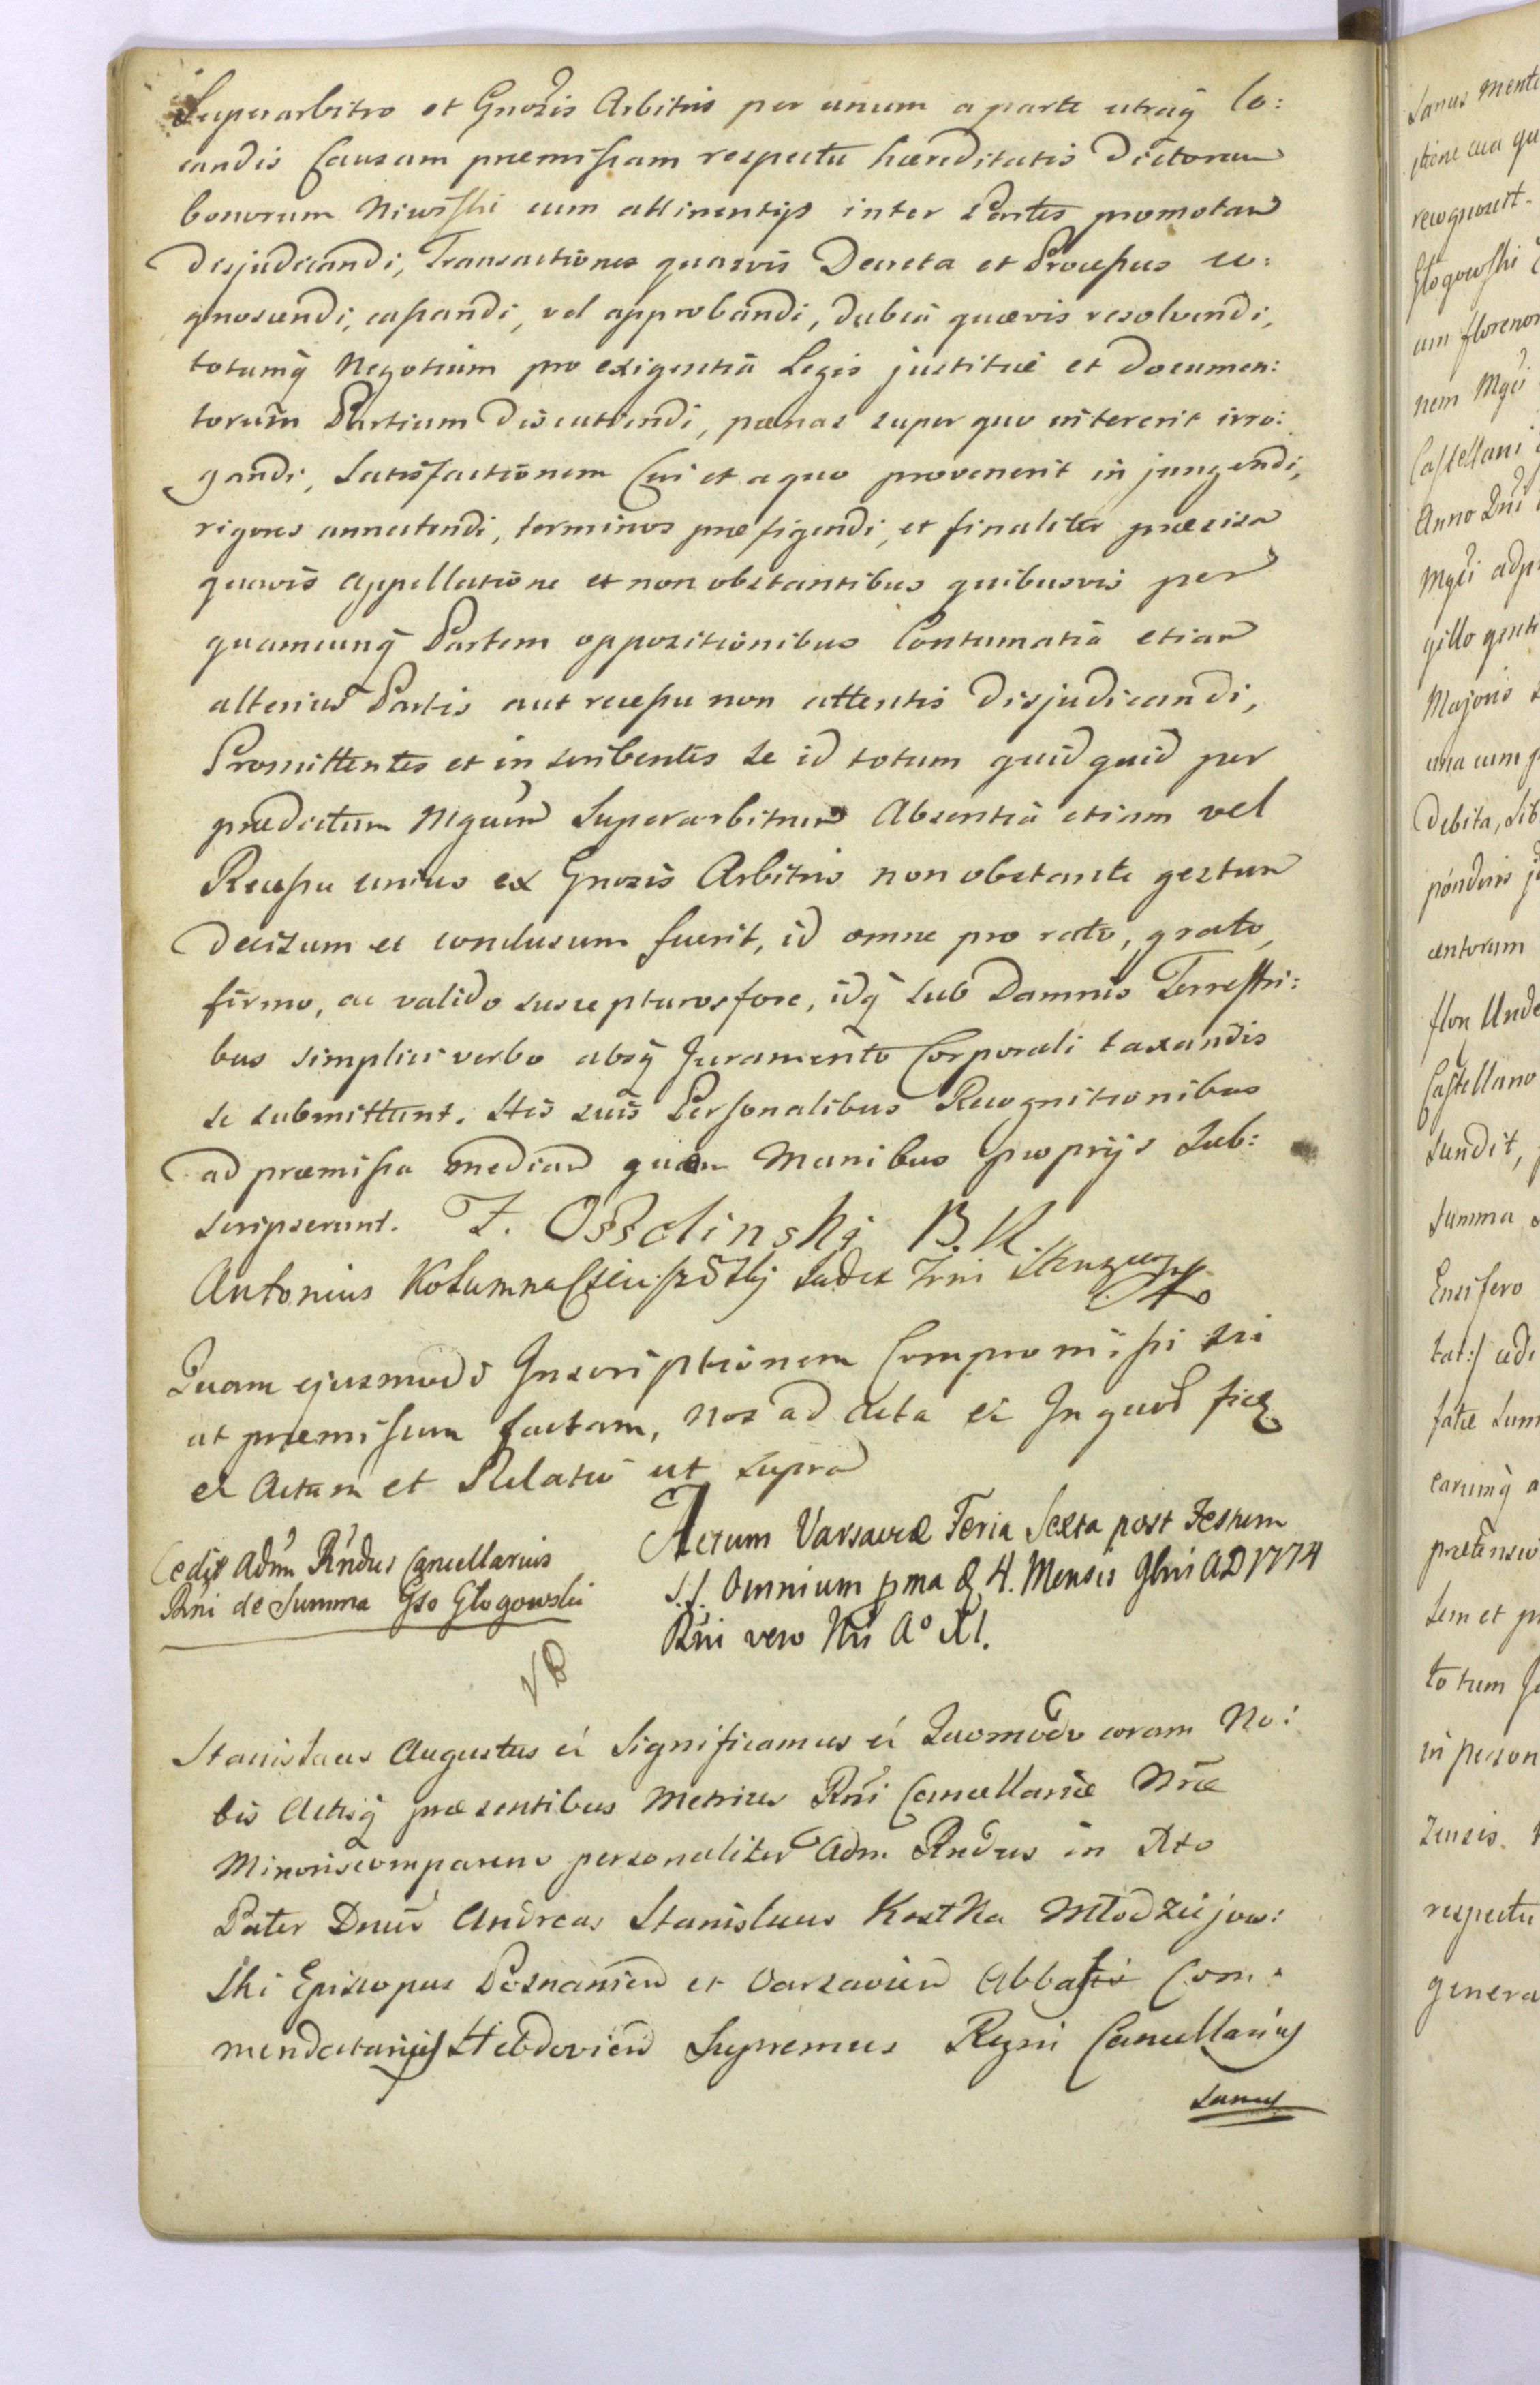 Superarbitro et Gnosis Arbitris per unum a parte utraq̃ lo:
candis Causam præmissam respectu hæreditatis dictorum
bonorum Niwiski cum attinentijs inter Partes promotam
disjudicandi, Transactiones quasvis Decreta et Processus co:
gnoscendi, cassandi, vel approbandi, dubia quævis resolvendi,
totumq̃ Negotium pro exigentia Legis justitiæ et documen:
torum Partium discutiendi, pænas super quo intererit irro:
gandi, Satisfactionem Cui et a quo provenerit injungendi,
rigores annectendi, terminos præfigendi, et finaliter præcisa
quavis appellatione et non obstantibus quibusvis per
quamcunq̃ Partem oppositionibus Contumatia etiam
alterius Partis aut recessu non attentis disjudicandi,
Promittentes et inscribentes se id totum quidquid per
prædictum Mgcum Superarbitrum Absentia etiam vel
Recessu unius ex Gnosis Arbitris non obstante gestum
decisum et conclusum fuerit, id omne pro rato, grato,
firmo, ac valido suscepturos fore, idq̃ sub Damnis Terrestri:
bus simplici verbo absq̃ Juramento Corporali taxandis
se submittunt. His suis Personalibus Recognitionibus
ad præmissa mediam quam Manibus proprijs sub:
scripserunt. F. Ossolinski
Antonius Kolumna
Quam ejusmodi Inscriptionem Compromissi sic
ut præmissum factam, nos ad Acta et In quod fice
et Actum et Relatio ut supra
Cedit Adm̃ Rndus Cancellarius
Rni de Summa Gso Glogowski
Actum Varsaviæ Feria Sexta post Festum
S.S. Omnium pma & 4. Mensis 9bris AD 1774
Rni vero Nri A° XI.
Stanislaus Augustus &ct Significamus &ct Quomodo coram No:
bis Actisq̃ præsentibus Metrices Rni Cancellariæ Nræ
Minoris comparens personaliter Adm. Rndus in Xto
Pater Dnus Andreas Stanislaus Kostka Młodziejow:
ski Episcopus Posnanien et Varsavien Abbas Com:
mendatarius Hebdovien Supremus Regni Cancellarius
sanus
Sanus mente
recognovit.
Glogowski
um floreno
nem Mgci
Castellani
Anno Dni
Mgci adp
gillo genti
Majoris
una cum
Debita, sib
ponderis
centorum
flor Unde
Castellano
sundit,
summa
Ensifero
fatæ Sum
earumq̃ a
prætensio
Sem et p
totum
in person
respectu
genera